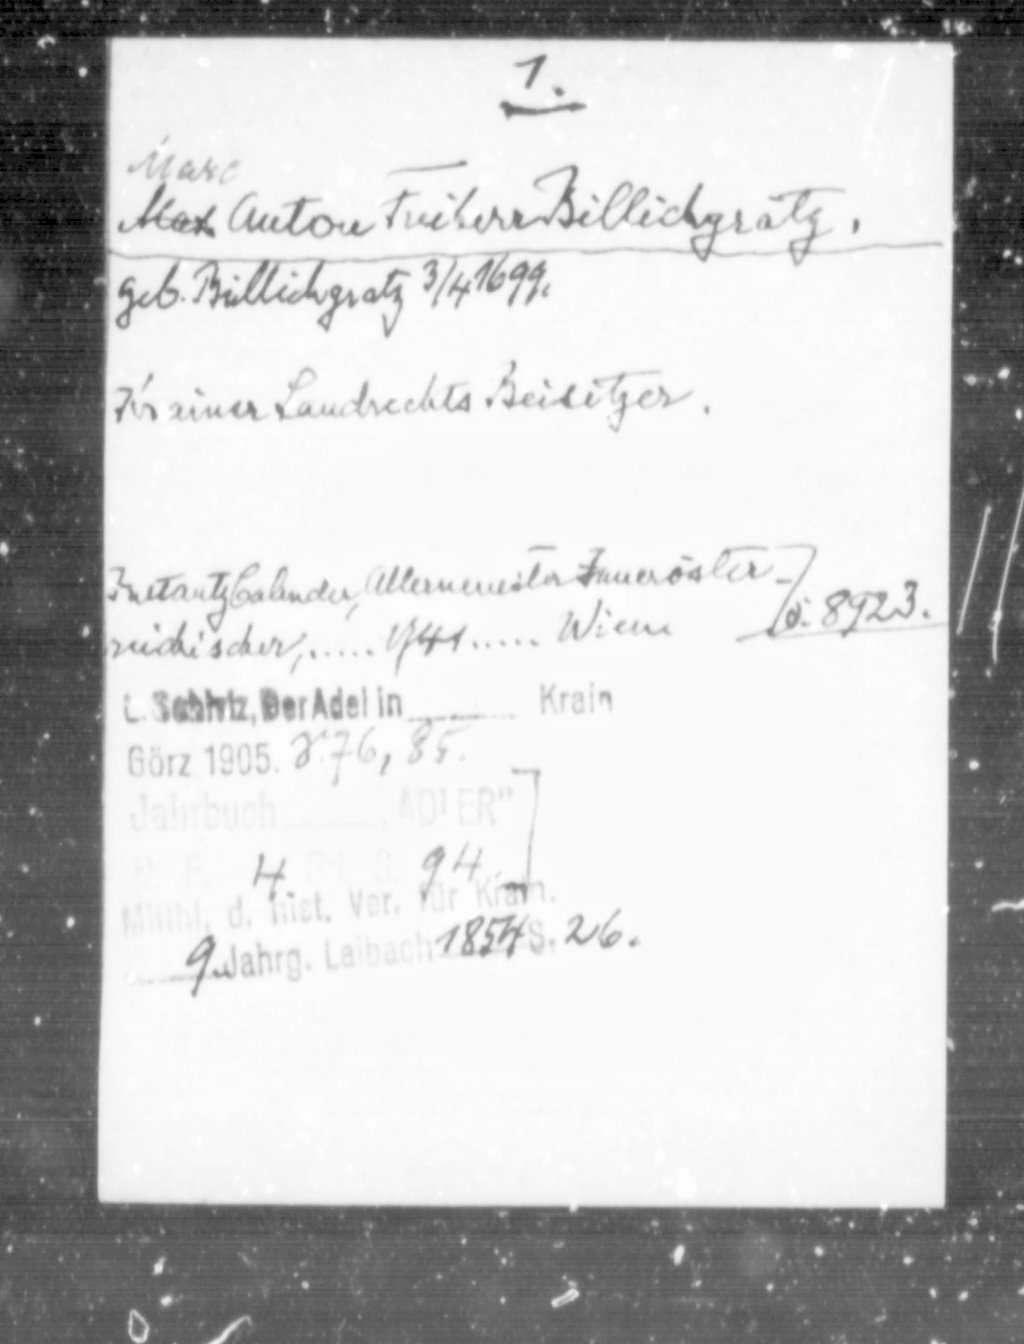 1.
Marc
Max Anton Freiherr Billichgratz.
geb. Billichgratz 3/4 1699.
Krainer Landrechts Beisitzer.
Instantz Calender, Allerneuester Inneröster-
reichischer, ..... 1741 ..... Wien
8923.
L. Schivitz, Der Adel in ........ Krain
Görz 1905. S. 76, 85.
Jahrbuch ........ ADLER"
N. F. 4. Bd. S. 94.
Mitthl. d. hist. Ver. für Krain.
9. Jahrg. Laibach 1854 S. 26.